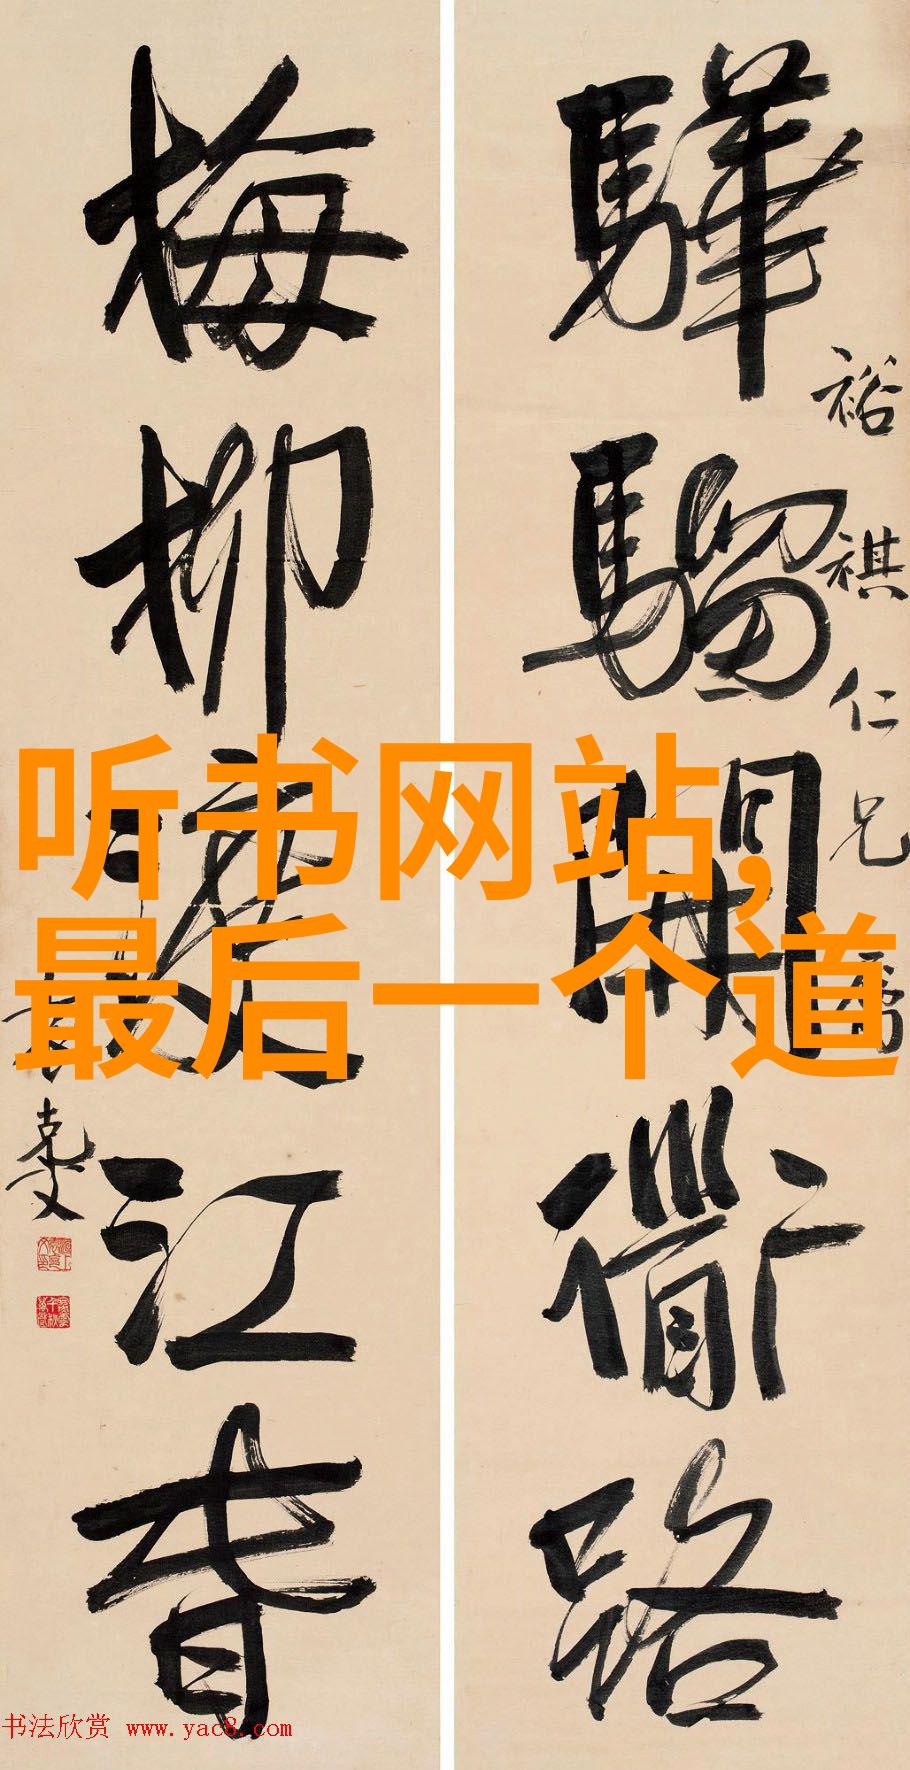 驊騮開衜路
裕祺仁兄屬
梅柳渡江春
克文
听书网站,
最后一个道
书法欣赏 www.yac8.com